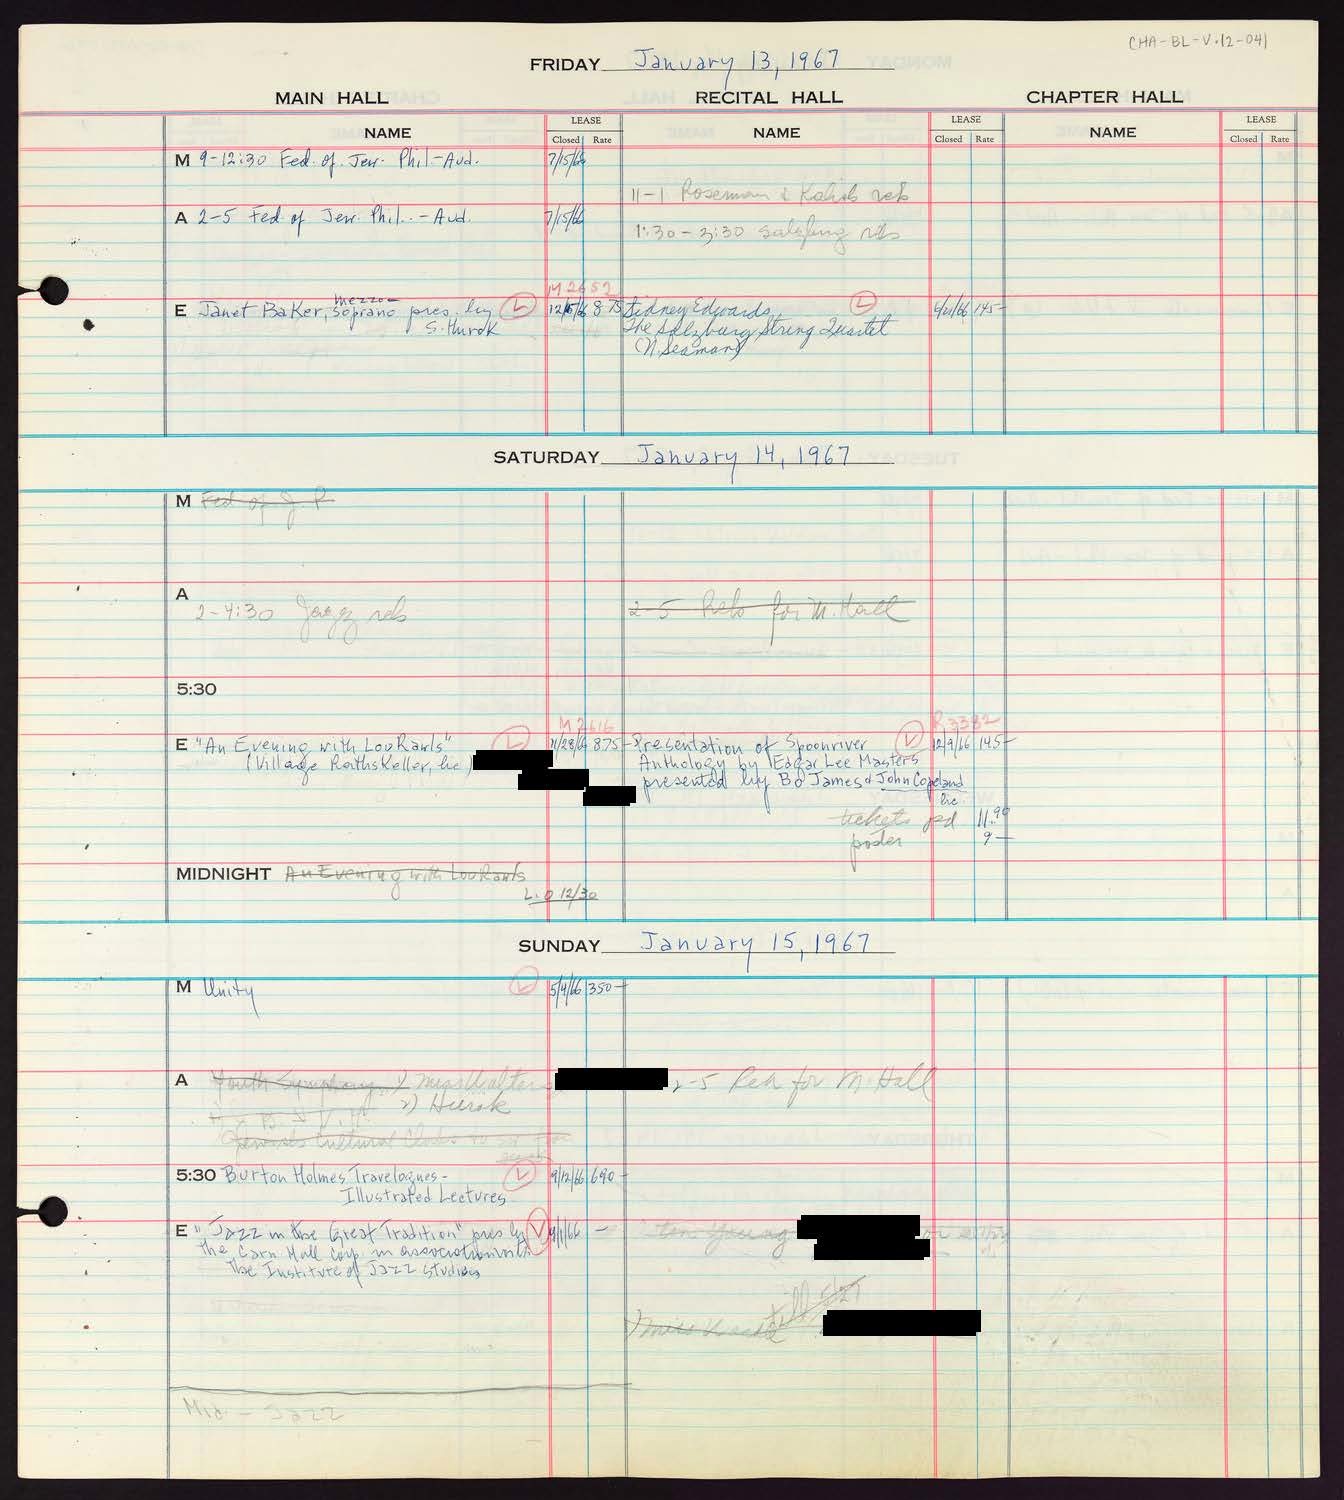 CHA-BL-V.12-041
FRIDAY January 13, 1967
MAIN HALL RECITAL HALL CHAPTER HALL
NAME LEASE NAME LEASE NAME LEASE
Closed Rate Closed Rate Closed Rate
M 9-12:30 Fed. of. Jew. Phil.-Aud. 7/15/66
11-1 Roseman & reh
A 2-5 Fed of Jew. Phil..-Aud. 7/15/66
1:30-3:30 Salzburg reh
M 2652
E Janet Baker, mezzo-soprano pres. by L 875
S. Hurok
Sidney Edwards, L 145-
The Salzburg String Quartet
(N. Seaman)
SATURDAY January 14, 1967
M Fed of J P
A
2-4:30 Jazz reh 2-5 Reh for M. Hall
5:30
M 2616 R 3382
E "An Evening with Lou Rawls" L 11/28/66 875-
(Village RathsKeller, Inc)
Presentation of Spoonriver L 12/9/66 145-
Anthology by Edgar Lee Masters
presented by Bo James & John Copeland
Inc
tickets pd 11.90
poster 9-
MIDNIGHT An Evening with Lou Rawls
L.O 12/30
SUNDAY January 15, 1967
M Unity L 5/4/66 350-
A Youth Symphony 1) Miss Walter 2-5 Reh for M. Hall
2) Hurok
Jewish Cultural Clubs
5:30 Burton Holmes Travelogues- L 9/12/66 690-
Illustrated Lectures
E "Jazz in the Great Tradition" pres by L 9/1/66 -
the Carn Hall Corp. in association with
the Institute of Jazz Studies
Young
till 5/27
Miss
Mid. - Jazz